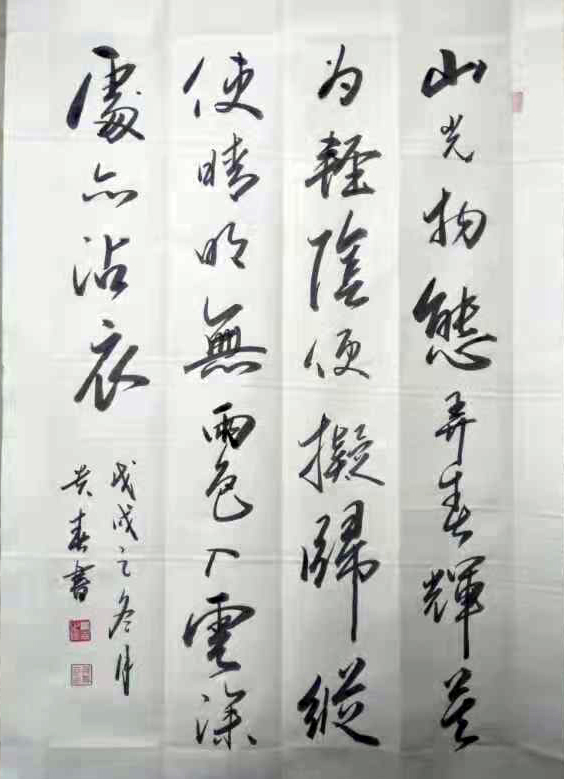 山光物態弄春輝莫
为輕陰便擬歸縱
使晴明無雨色入雲深
處亦沾衣
戊戌之冬月
春書